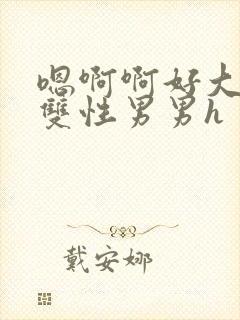 嗯啊啊好大
雙性男男h
戴安娜